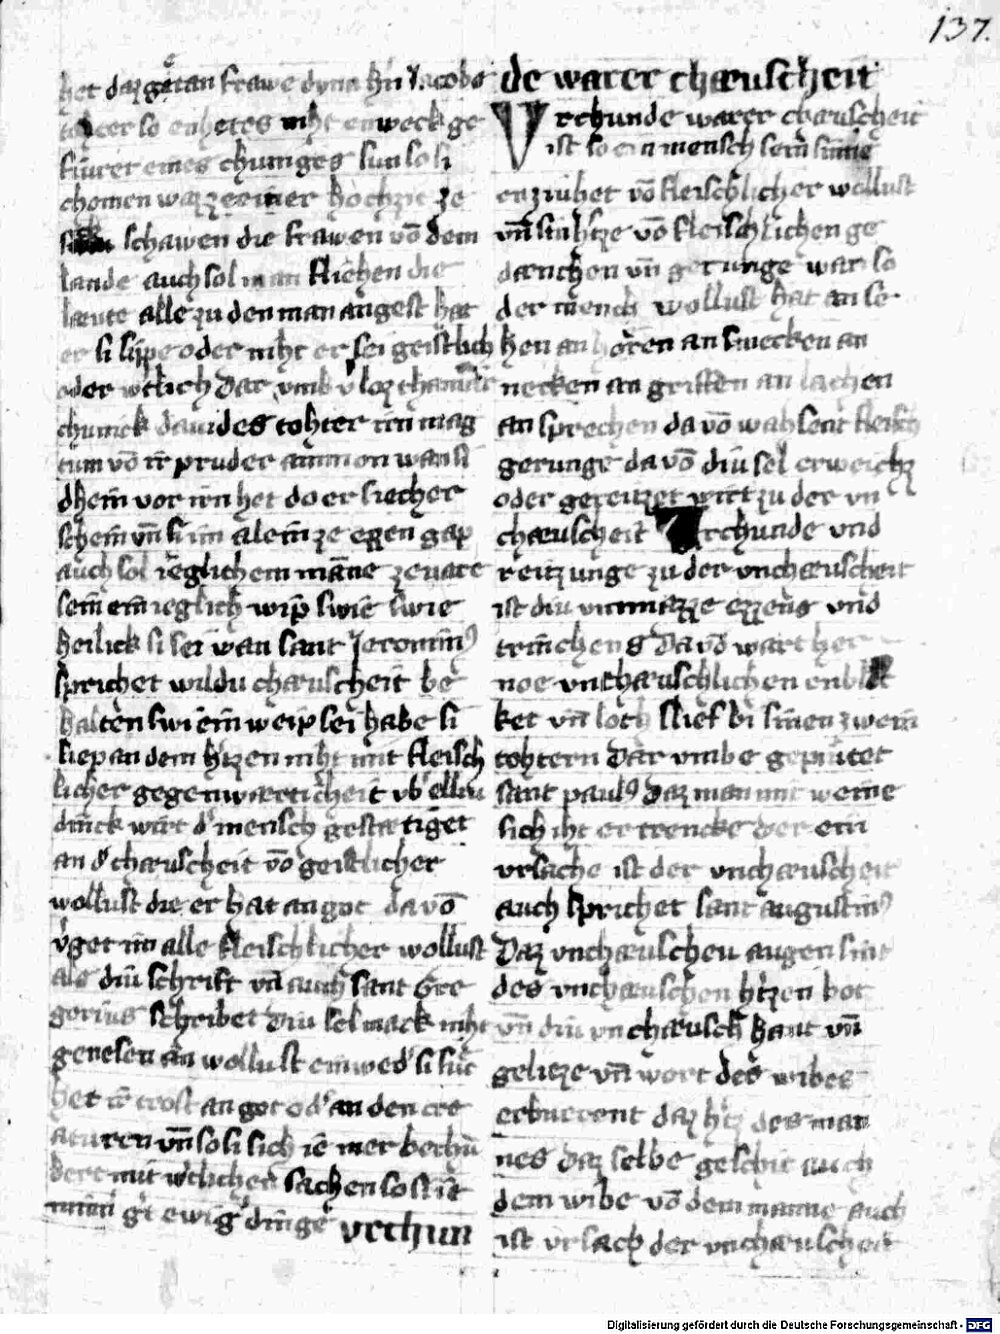 137.
het daz getan frawe dyna hñ Jacobs
tohter so enhetes niht enweck ge
fürer eines chuniges sun so si
chomen waz ze einer hochzit ze
schawen die frawen võ dem
lande auch sol man fliehen die
laeute alle zu den man angest hat
er si sippe oder niht er sei geistlich
oder wltlich Dar vmb vloz thamar
chunick dauides tohter irn mag
tum võ ir pruder ammon wan si
dhein vor irn het do er siecher
schein vñ si im alein ze ezzen gap
auch sol ieglichem manne ze vare
sein ein ieglich wip swie swie
heilick si sei wan sant Jeronimꝰ
sprichet wildu chaeuscheit be
halten swi ein weip sei habe si
liep an dem htzen niht mit fleisch
licher gegenwærticheit vb elliu
dinck wirt d mensch gestætiget
an d chæuscheit võ geistlicher
wollust die er hat an got da võ
vget im alle fleischlicher wollust
als diu schrift vñ auch sant Gre
gorius schribet Diu sel mack niht
genesen an wollust einwed si suc
het ir trost an got od an den cre
aturen vñ so si sich ie mer bechu
bert mit wltlichen sachen so si ie
minn git ewig dinge vrchun
de warer chæuscheit
Vrchunde warer chæuscheit
ist so ein mensch sein sinne
enziuhet võ fleischlicher wollust
vñ siuhtze võ fleischlichen ge
dænchen vñ gerunge wan so
der mensch wollust hat an se
hen an hören an smecken an
necken an griffen an lachen
an sprechen da võ wahsent fleisch
gerunge da võ diu sel erweichz
oder gereitzet wirt zu der vn
chæuscheit Vrchunde vnd
reitzunge zu der vnchæuscheit
ist diu vnmazze ezzens vnd
trinchens Da võ wart her
noe vnchæuschlichen enblec
ket vñ loth slief bi sinen zwein
tohtern Dar vmbe gepiutet
sant paulꝰ Daz man mit weine
sich iht ertrencke der ein
vrsache ist der vnchæuscheit
auch sprichet sant augustinꝰ
Daz vnchæuschen augen sint
des vnchæuschen htzen bot
vñ diu vnchæusch hant vñ
gelieze vñ wort des wibes
erbuerent daz htz des man
nes Daz selbe geschit auch
dem wibe võ dem manne auch
ist vrsach der vnchæuscheit
Digitalisierung gefördert durch die Deutsche Forschungsgemeinschaft - DFG